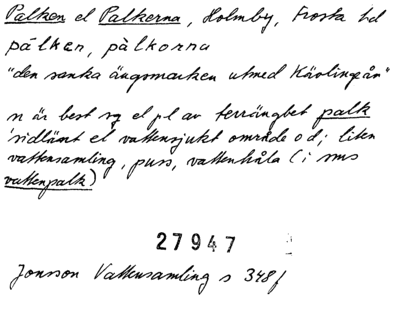 Palken el Palkerna, Holmby, Frosta hd
pálkən, pàlkorna
"den sanka ängsmarken utmed Kävlingeån"
n är best sg el pl av terrängbet palk
'sidlänt el vattensjukt område o d; liten
vattensamling, puss, vattenhåla (i sms
vattenpalk)
27947
Jonsson Vattensamling s 348f